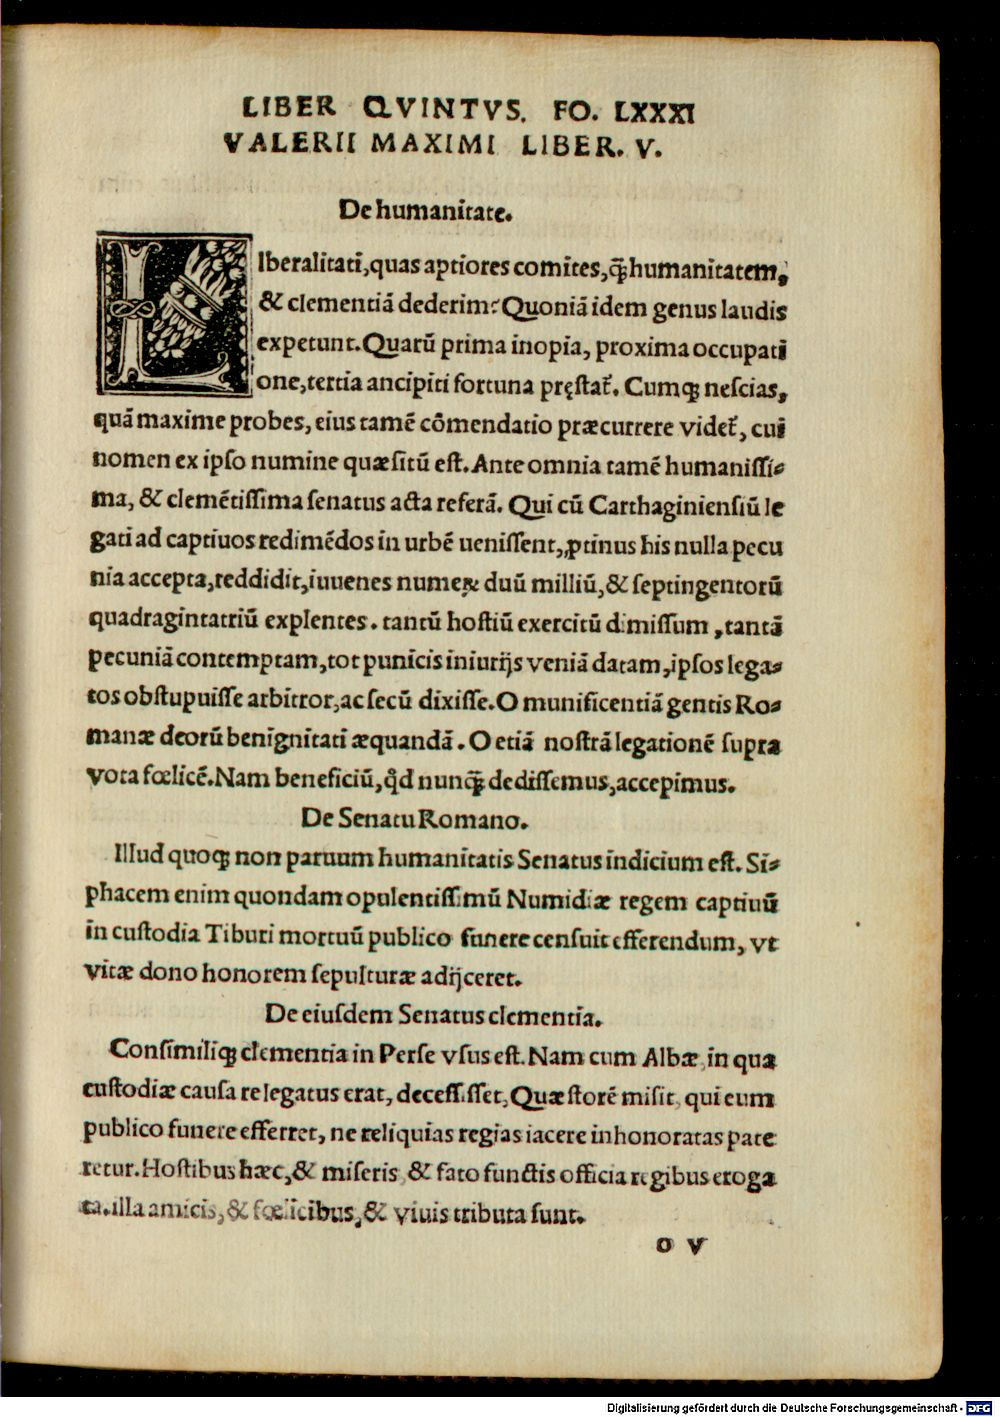 LIBER QVINTVS. FO. LXXXI
VALERII MAXIMI LIBER. V.
De humanitate.
LIberalitati, quas aptiores comites, q̃ꝫ humanitatem,
& clementiã dederim? Quoniã idem genus laudis
expetunt. Quarũ prima inopia, proxima occupati
one, tertia ancipiti fortuna pręstat᷑. Cumqꝫ nescias,
quã maxime probes, eius tamẽ cõmendatio præcurrere videt᷑, cui
nomen ex ipso numine quæsitũ est. Ante omnia tamẽ humanissi⸗
ma, & clemẽtissima senatus acta referã. Qui cũ Carthaginiensiũ le
gati ad captiuos redimẽdos in urbẽ uenissent, ꝓtinus his nulla pecu
nia accepta, reddidit, iuuenes numeꝝ duũ milliũ, & septingentorũ
quadragintatriũ explentes. tantũ hostiũ exercitũ dimissum, tantã
pecuniã contemptam, tot punicis iniurijs veniã datam, ipsos lega⸗
tos obstupuisse arbitror, ac secũ dixisse. O munificentiã gentis Ro⸗
manæ deorũ benignitati æquandã. O etiã nostrã legationẽ supra
vota fœlicẽ. Nam beneficiũ, qd̓ nunq̃ꝫ dedissemus, accepimus.
De Senatu Romano.
Illud quoqꝫ non paruum humanitatis Senatus indicium est. Si⸗
phacem enim quondam opulentissimũ Numidiæ regem captiuũ
in custodia Tiburi mortuũ publico funere censuit efferendum, vt
vitæ dono honorem sepulturæ adijceret.
De eiusdem Senatus clementia.
Consimiliqꝫ clementia in Perse vsus est. Nam cum Albæ, in qua
custodiæ causa relegatus erat, decessisset, Quæstorẽ misit, qui eum
publico funere efferret, ne reliquias regias iacere inhonoratas pate
retur. Hostibus hæc, & miseris, & fato functis officia regibus eroga
ta. illa amicis, & fœlicibus, & viuis tributa sunt.
O V
Digitalisierung gefördert durch die Deutsche Forschungsgemeinschaft - DFG